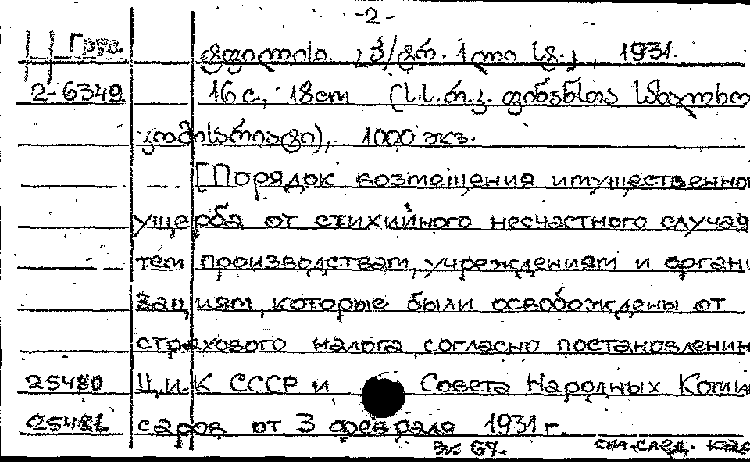 -2-
Груз. ტფილისი. 1931.
2-6349 16 с, 18cm (ს.ს.რ.კ. ფინანსთა სახალხო
კომისარიატი), 1000 экз.
[Порядок возмещения имущественно
ущерба от стихийного несчастного случая
тем производствам, учреждениям и органи
зациям, которые были освобождены от
страхового налога согласно постановлени
25480 Ц.И.К СССР и Совета Народных Коми
25481 саров от 3 февраля 1931 г.
см. след.